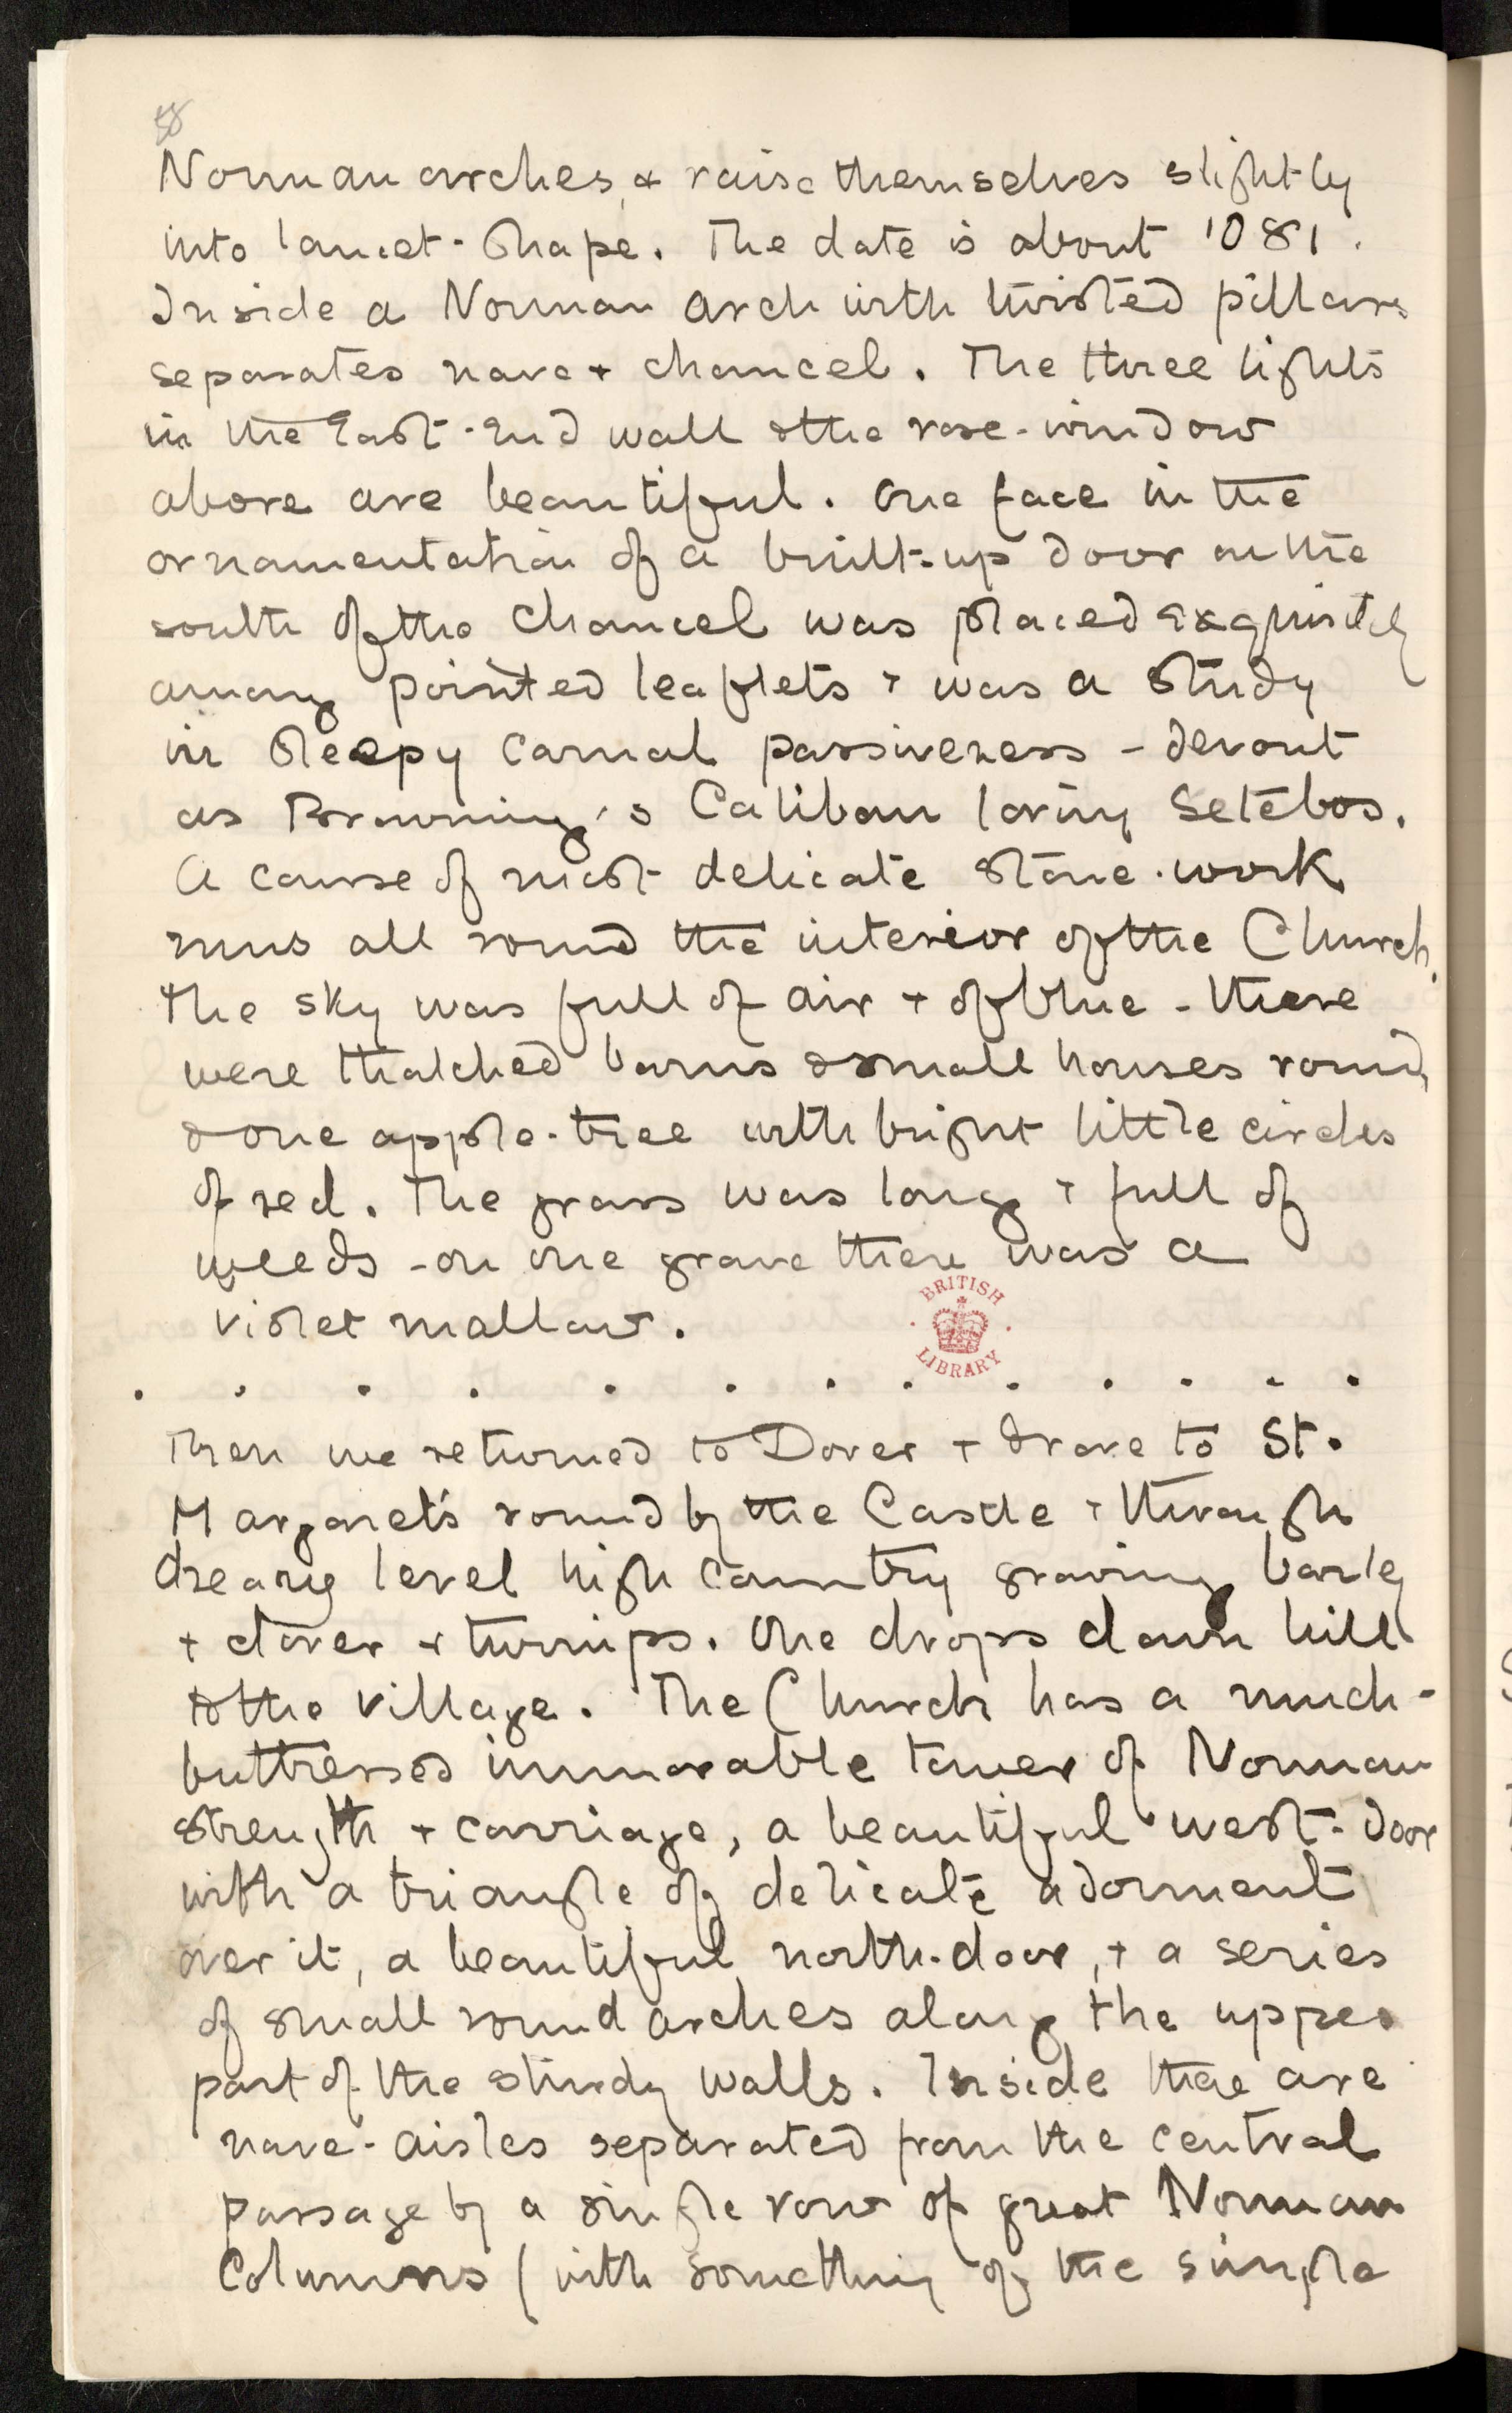 58
Norman arches, & raise themselves slightly
into lancet-shape. The date is about 1081.
Inside a Norman arch with twisted pillars
separates nave & chancel. The three lights
in the East-End wall & the rose-window
above are beautiful. One face in the
ornamentation of a built-up door on the
south of the chancel was placed exquisitely
among pointed leaflets & was a study
in sleepy carnal passiveness - devout
as Browning's Caliban loving Setebos.
A course of most delicate stone-work
runs all round the interior of the Church.
The sky was full of air & of blue - there
were thatched barns & small houses round,
& one apple-tree with bright little circles
of red. The grass was long & full of
weeds - on one grave there was a
violet mallow.
BRITISH LIBRARY
. . . . . . . . . . . . .
Then we returned to Dover & drove to St.
Margaret's round by the Castle & through
dreary level high country growing barley
& clover & turnips. One drops down hill
to the village. The Church has a much-
buttressed immovable tower of Norman
strength & carriage, a beautiful west-door
with a triangle of delicate adornment
over it, a beautiful north-door, & a series
of small round arches along the upper
part of the sturdy walls. Inside there are
nave-aisles separated from the central
passage by a single row of great Norman
Columns (with something of the simple